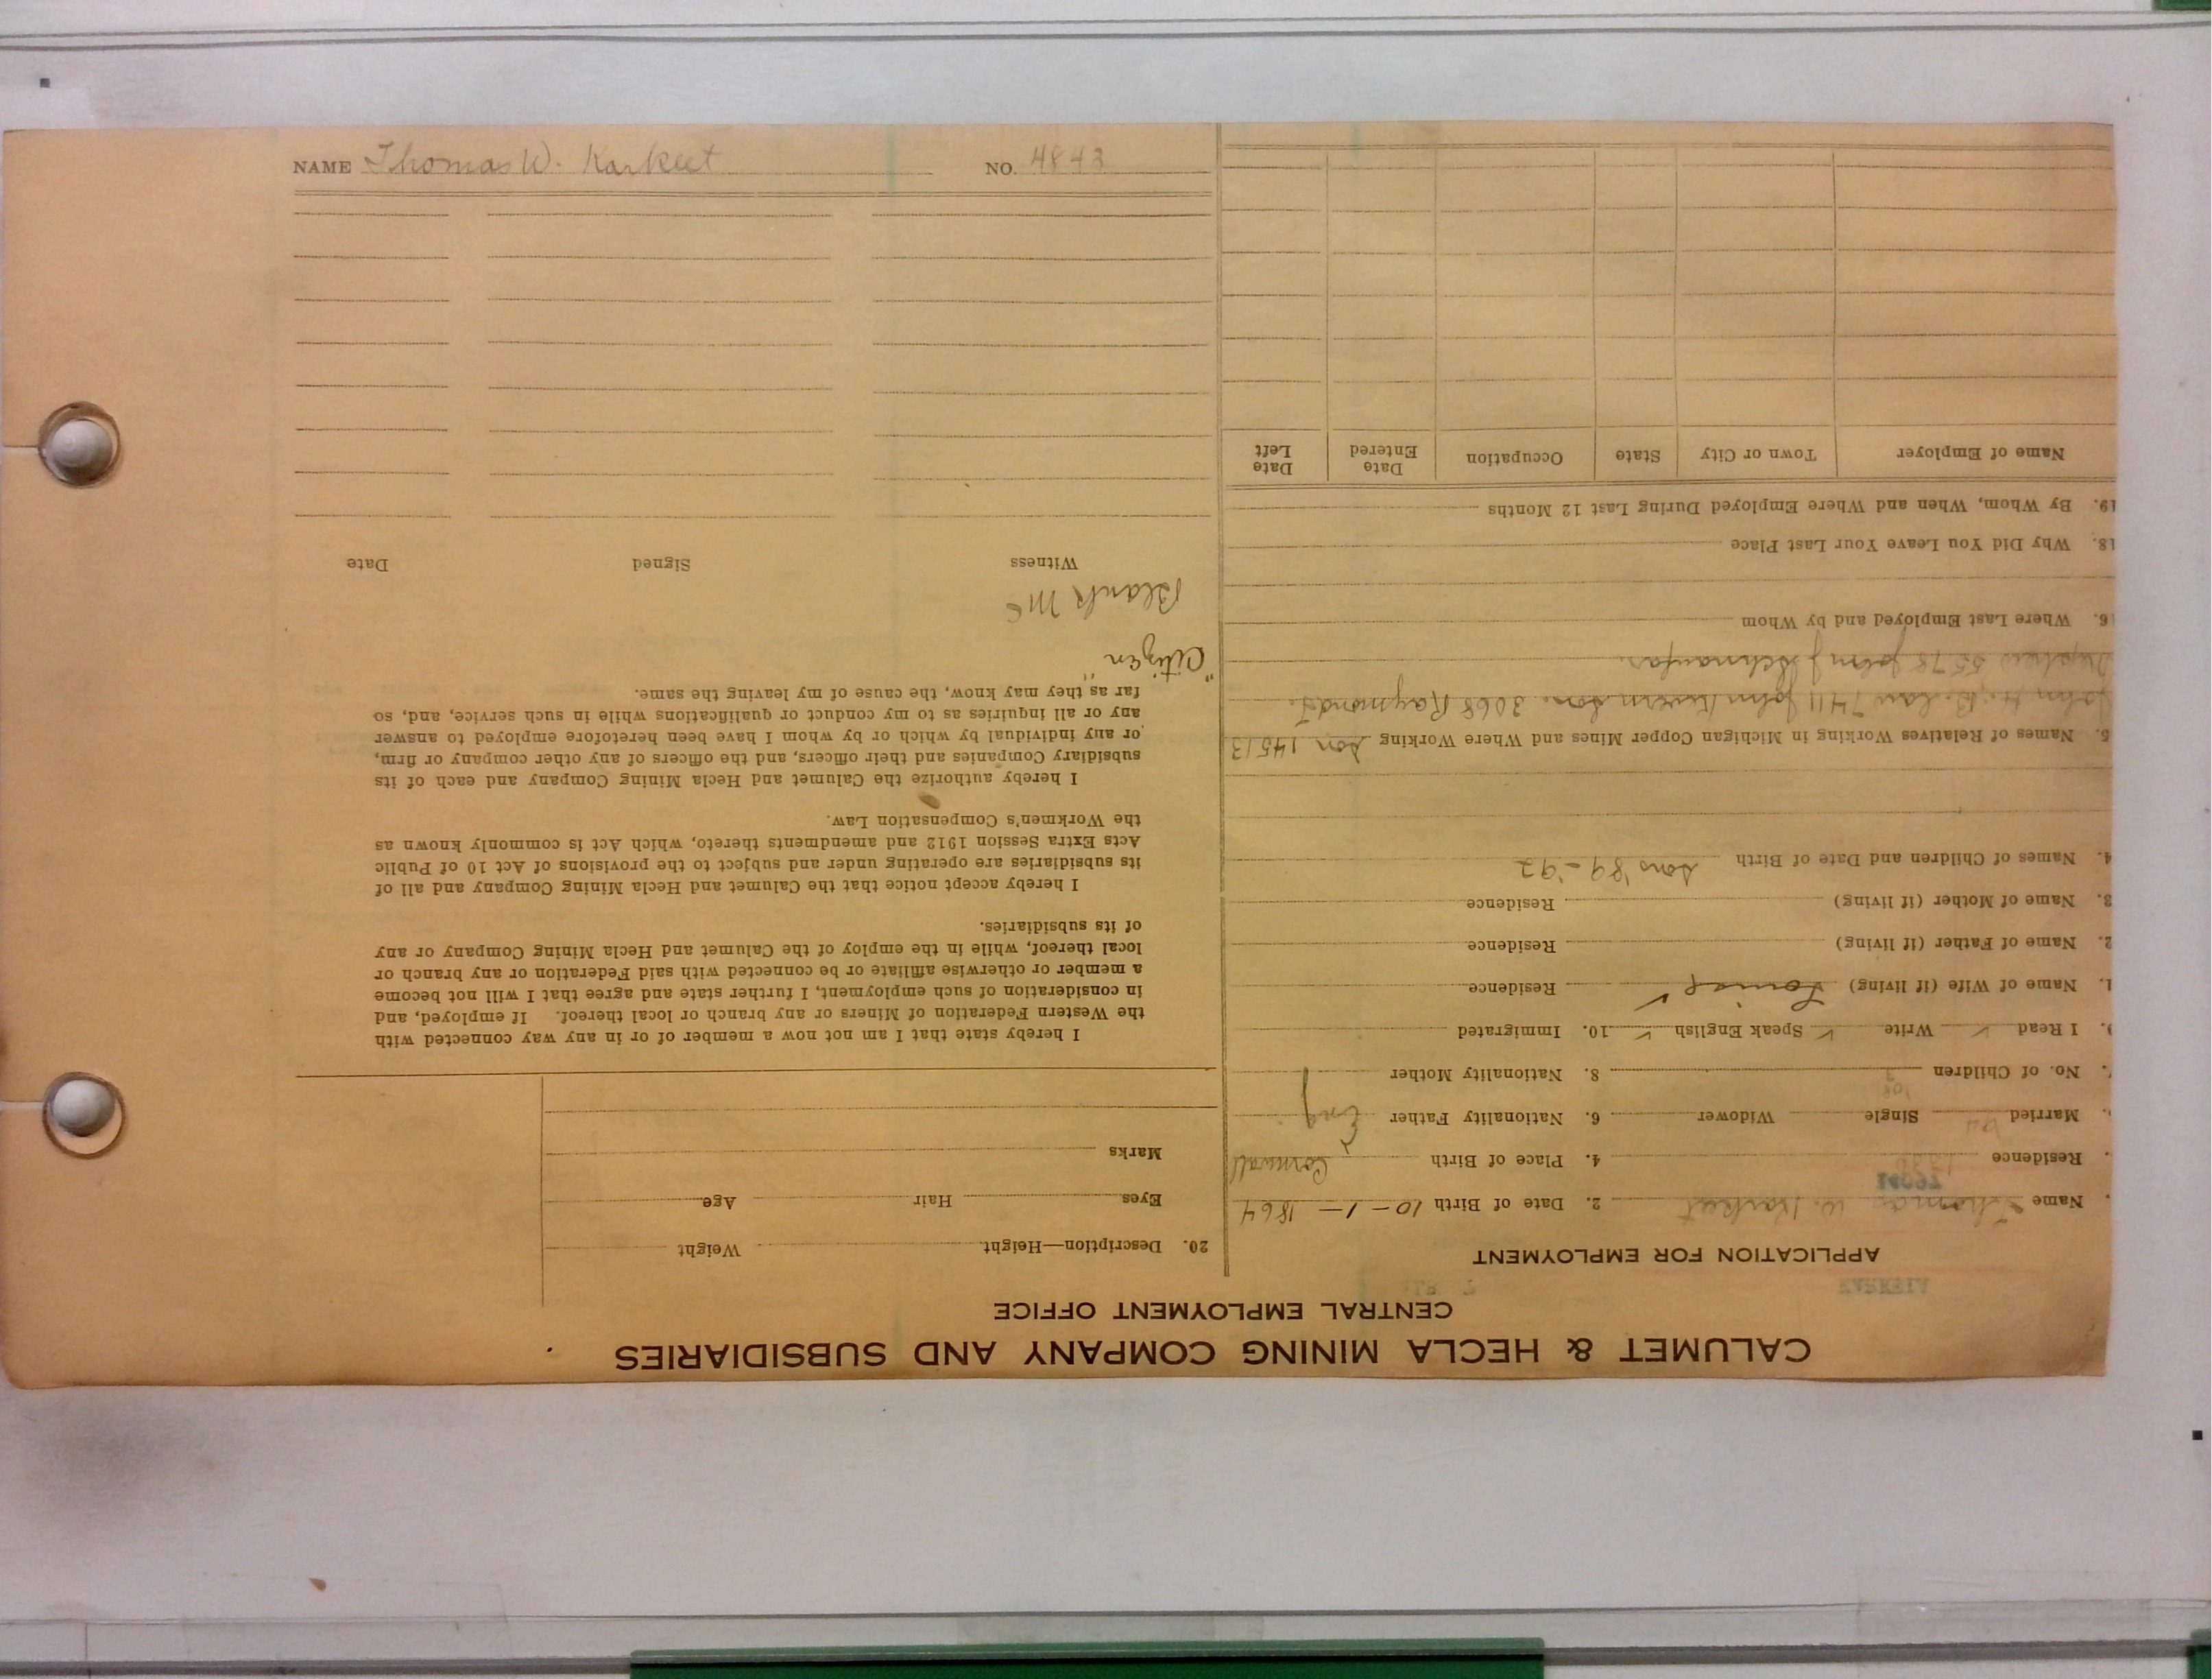 NAME Thomas W. Karkeet NO. 4843
CALUMET & HECLA MINING COMPANY AND SUBSIDIARIES
CENTRAL EMPLOYMENT OFFICE
APPLICATION FOR EMPLOYMENT
. Name Thomas W. Karkeet 2. Date of Birth 10 - 1 - 1864
. Residence 4. Place of Birth Cornwall
. Married Single Widower 6. Nationality Father Eng
. No. of Children 8. Nationality Mother
9. I Read ✓ Write ✓ Speak English ✓ 10. Immigrated
1. Name of Wife (if living) Louise ✓ Residence
2. Name of Father (if living) Residence
3. Name of Mother (if living) Residence
4. Names of Children and Date of Birth Sons '89 - '92
5. Names of Relatives Working in Michigan Copper Mines and Where Working Son 14513
John H., B. law 7411 John Kivern Son. 3068 Raymond J.
Nephew 5578 John J
6. Where Last Employed and by Whom
18. Why Did You Leave Your Last Place
19. By Whom, When and Where Employed During Last 12 Months
Name of Employer Town or City State Occupation Date Entered Date Left
20. Description—Height Weight
Eyes Hair Age
Marks
I hereby state that I am not now a member of or in any way connected with
the Western Federation of Miners or any branch or local thereof. If employed, and
in consideration of such employment, I further state and agree that I will not become
a member or otherwise affiliate or be connected with said Federation or any branch or
local thereof, while in the employ of the Calumet and Hecla Mining Company or any
of its subsidiaries.
I hereby accept notice that the Calumet and Hecla Mining Company and all of
its subsidiaries are operating under and subject to the provisions of Act 10 of Public
Acts Extra Session 1912 and amendments thereto, which Act is commonly known as
the Workmen's Compensation Law.
I hereby authorize the Calumet and Hecla Mining Company and each of its
subsidiary Companies and their officers, and the officers of any other company or firm,
or any individual by which or by whom I have been heretofore employed to answer
any or all inquiries as to my conduct or qualifications while in such service, and, so
far as they may know, the cause of my leaving the same.
"Citizen"
Blank Mc
Witness Signed Date